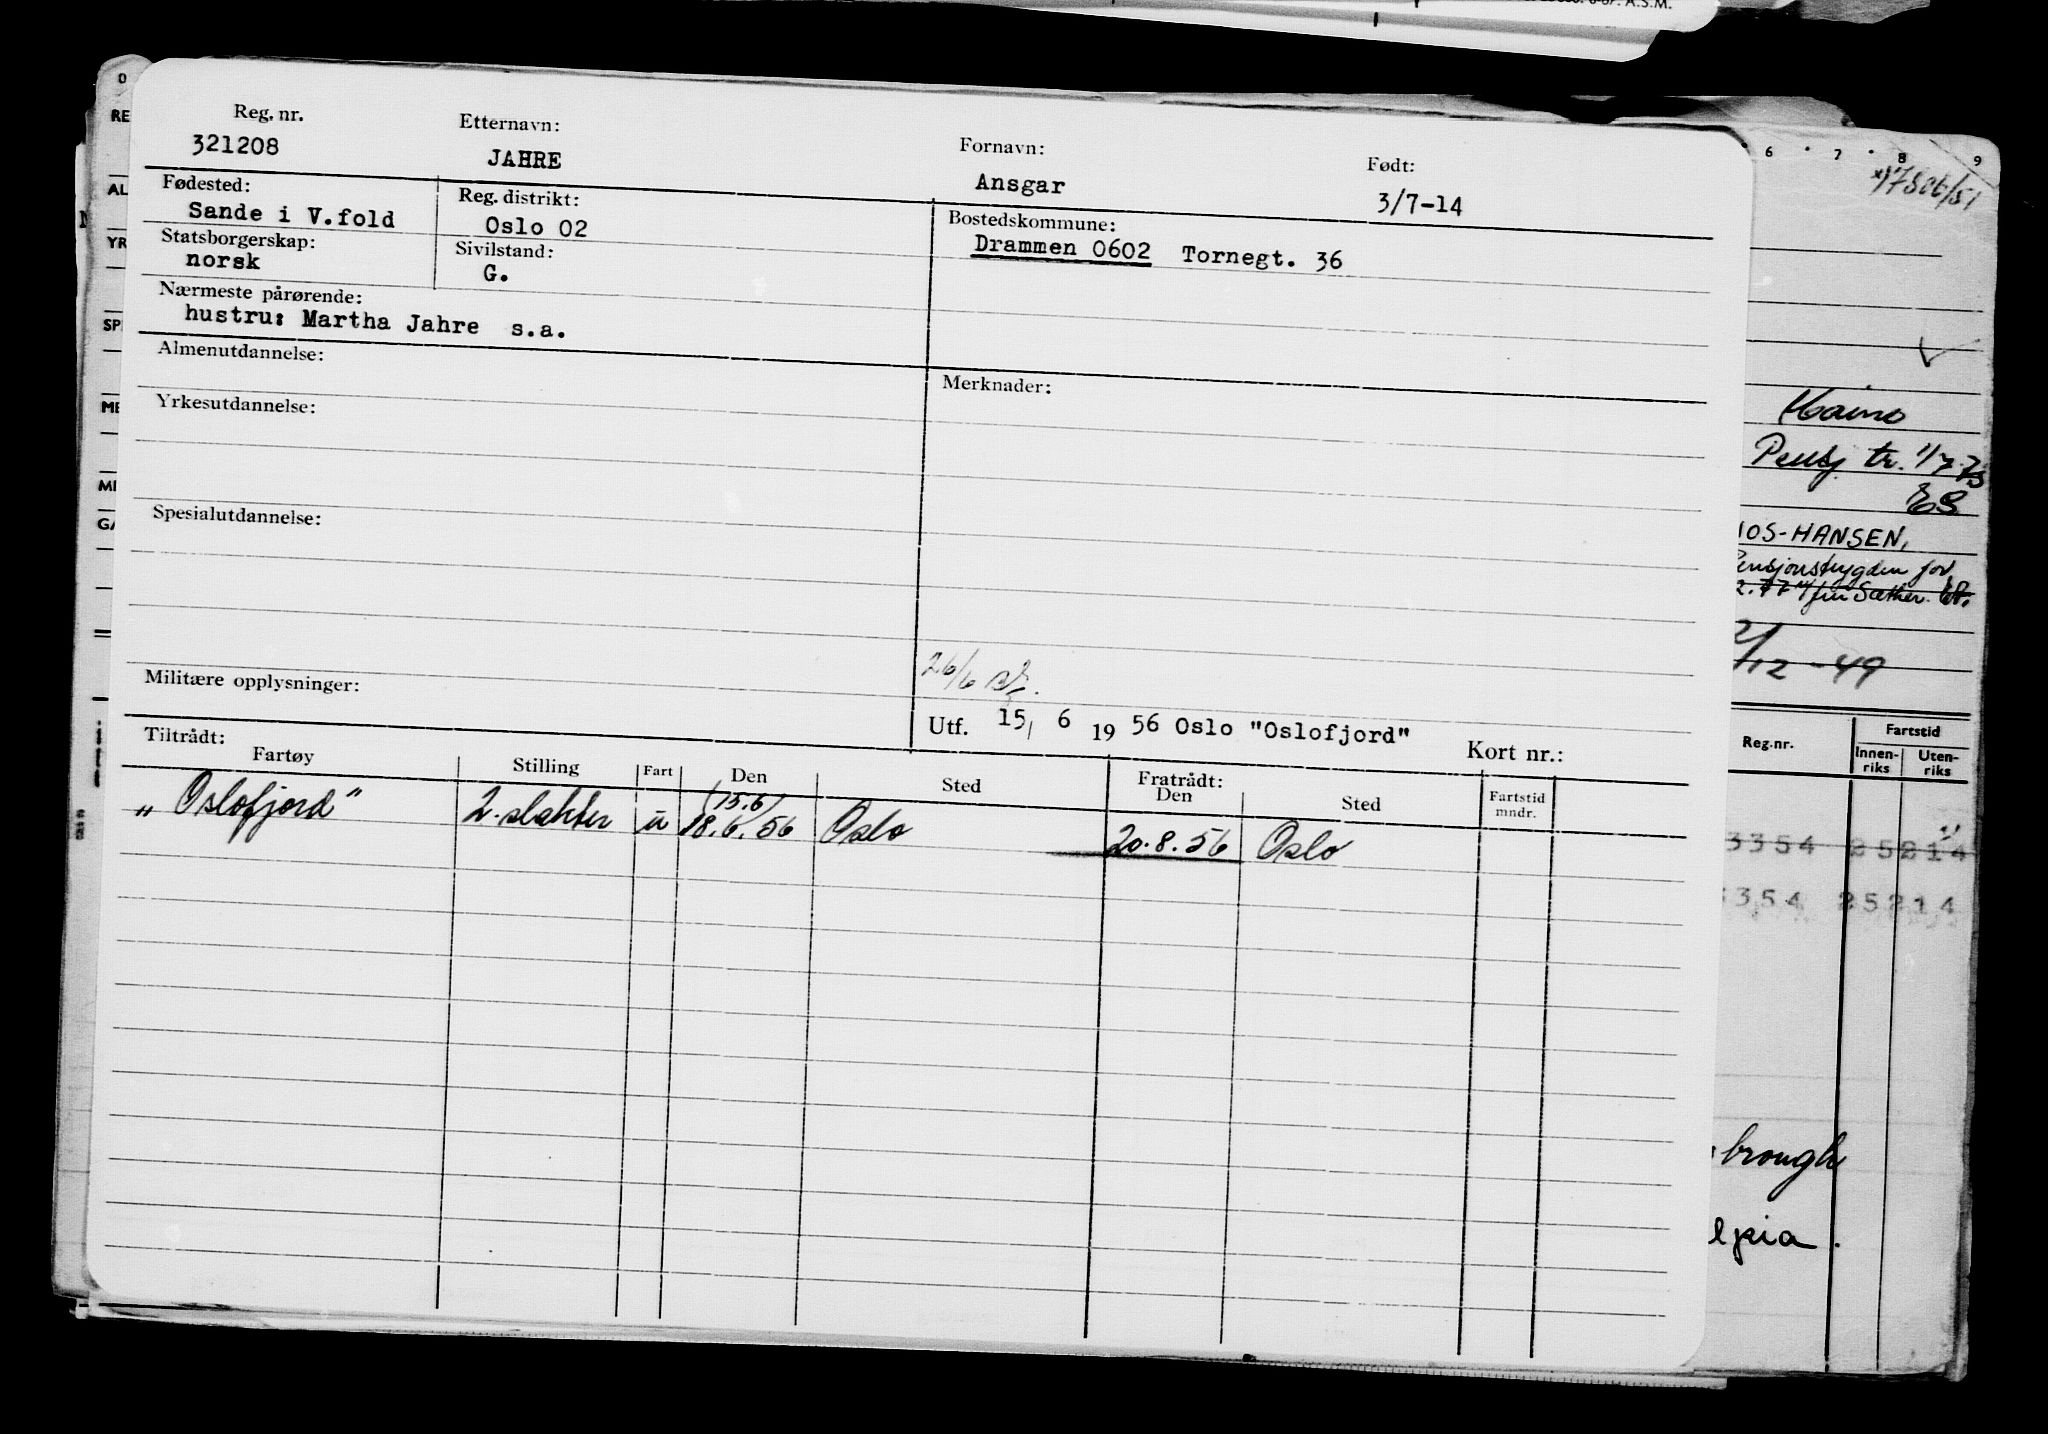 Reg. nr. Etternavn: Fornavn: Født:
321208 JAHRE Ansgar 3/7-14
Fødested: Reg. distrikt: Bostedskommune:
Sande i V.fold Oslo 02 Drammen 0602 Tornegt. 36
Statsborgerskap: Sivilstand:
norsk G.
Nærmeste pårørende:
hustru: Martha Jahre s.a.
Almenutdannelse: Merknader:
Yrkesutdannelse:
Spesialutdannelse:
26/6
Militære opplysninger:
Utf. 15/ 6 19 56 Oslo "Oslofjord" Kort nr.:
Tiltrådt: Fratrådt:
Fartøy Stilling Fart Den Sted Den Sted Fartstid mndr.
(15.6)
„Oslofjord" 2. slakter u 18.6.56 Oslo 20.8.56 Oslo
A.S.M.
0
RE
AL
YR
SPE
ME
GA
6 7 8 9
Pensj tr. 1/7-73
ES
HOS-HANSEN,
Pensjonstrygden for
2/12-49
Reg.nr. Fartstid
Innen-riks Uten-riks
3354 25214
3354 25214
brough
lpia.